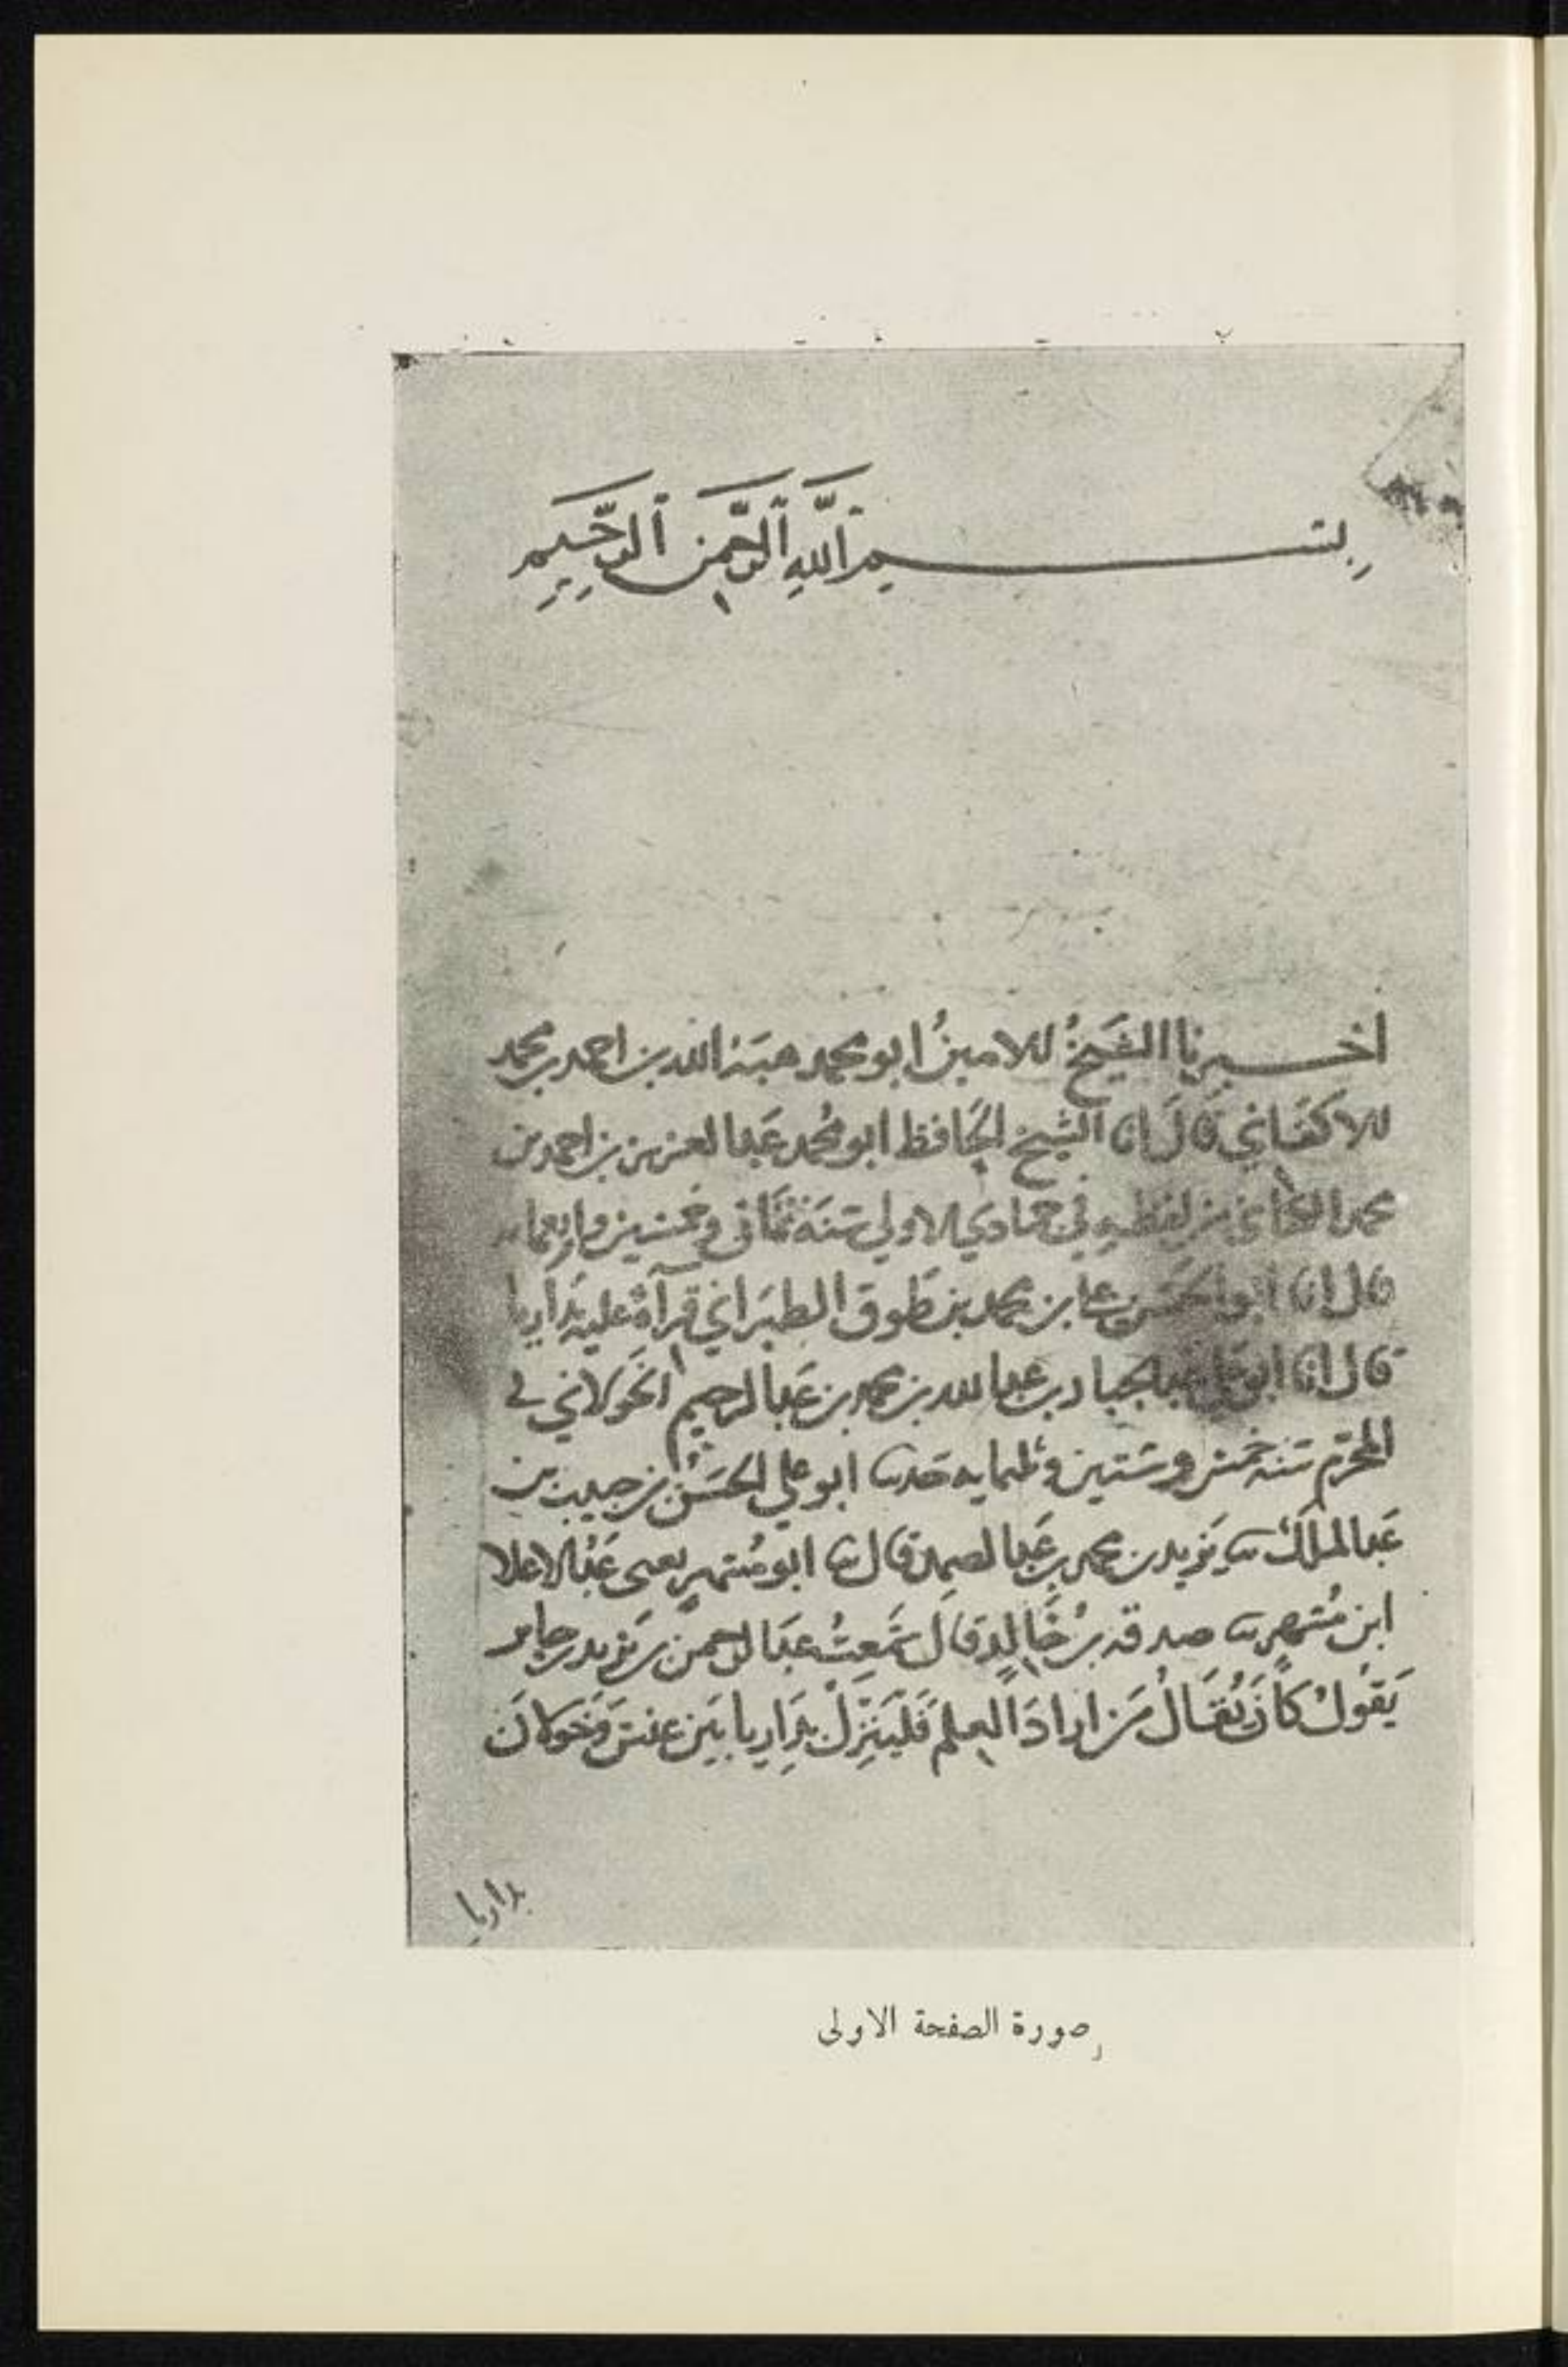 بسم الله الرحمن الرحيم
اخبرنا الشيخ الامين ابو محمد هبة الله بن احمد بن محمد
الاكفاني قال انا الشيخ الحافظ ابو محمد عبد العزيز بن احمد بن
محمد الكتاني من لفظه في جمادي الاولي سنة ثماني وخمسين واربعمايه
قال انا ابو الحسن علي بن محمد بن طوق الطبراني قرآة عليه بداريا
قال انا ابو علي عبد الجبار بن عبد الله بن محمد بن عبد الرحيم الخولاني في
المحرم سنة خمس وستين وثلثمايه حدثنا ابو علي الحسن بن حبيب بن
عبد الملك ثنا يزيد بن محمد بن عبد الصمد قال ثنا ابو مسهر يعني عبد الاعلا
ابن مسهر ثنا صدقه بن خالد قال سمعت عبد الرحمن بن يزيد بن جابر
يقول كان يقال من اراد العلم فلينزل بداريا بين عنس وخولان
بداريا
صورة الصفحة الاولى